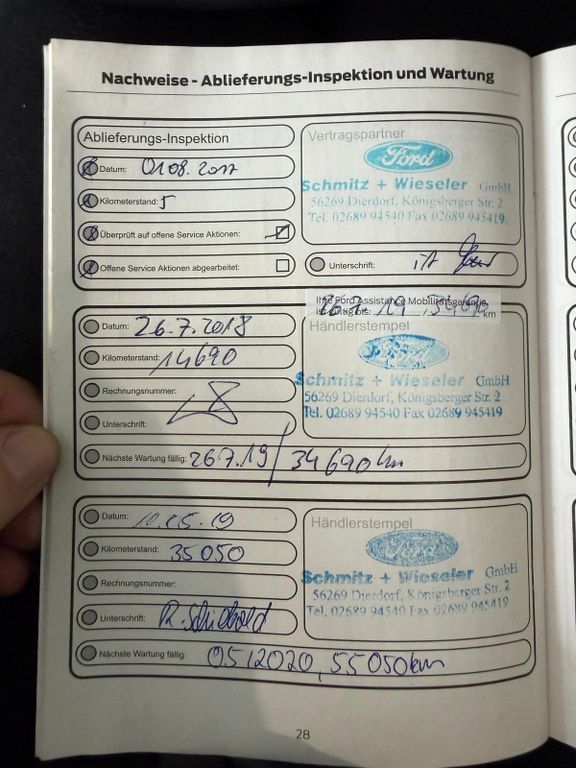 Nachweise - Ablieferungs-Inspektion und Wartung
Ablieferungs-Inspektion
Datum: 01.08.2017
Kilometerstand: 5
Überprüft auf offene Service Aktionen:
Offene Service Aktionen abgearbeitet:
Vertragspartner
Ford
Schmitz + Wieseler GmbH
56269 Dierdorf, Königsberger Str. 2
Tel. 02689 94540 Fax 02689 945419
Unterschrift:
Ihre Ford Assistance Mobilitätsgarantie
26.7.19 34690 km
Datum: 26.7.2018
Kilometerstand: 14690
Rechnungsnummer:
Unterschrift:
Händlerstempel
Ford
Schmitz + Wieseler GmbH
56269 Dierdorf, Königsberger Str. 2
Tel. 02689 94540 Fax 02689 945419
Nächste Wartung fällig: 26.7.19 / 34690 km
Datum: 10.05.19
Kilometerstand: 35050
Rechnungsnummer:
Unterschrift:
Händlerstempel
Ford
Schmitz + Wieseler GmbH
56269 Dierdorf, Königsberger Str. 2
Tel. 02689 94540 Fax 02689 945419
Nächste Wartung fällig: 05/2020, 55050km
28